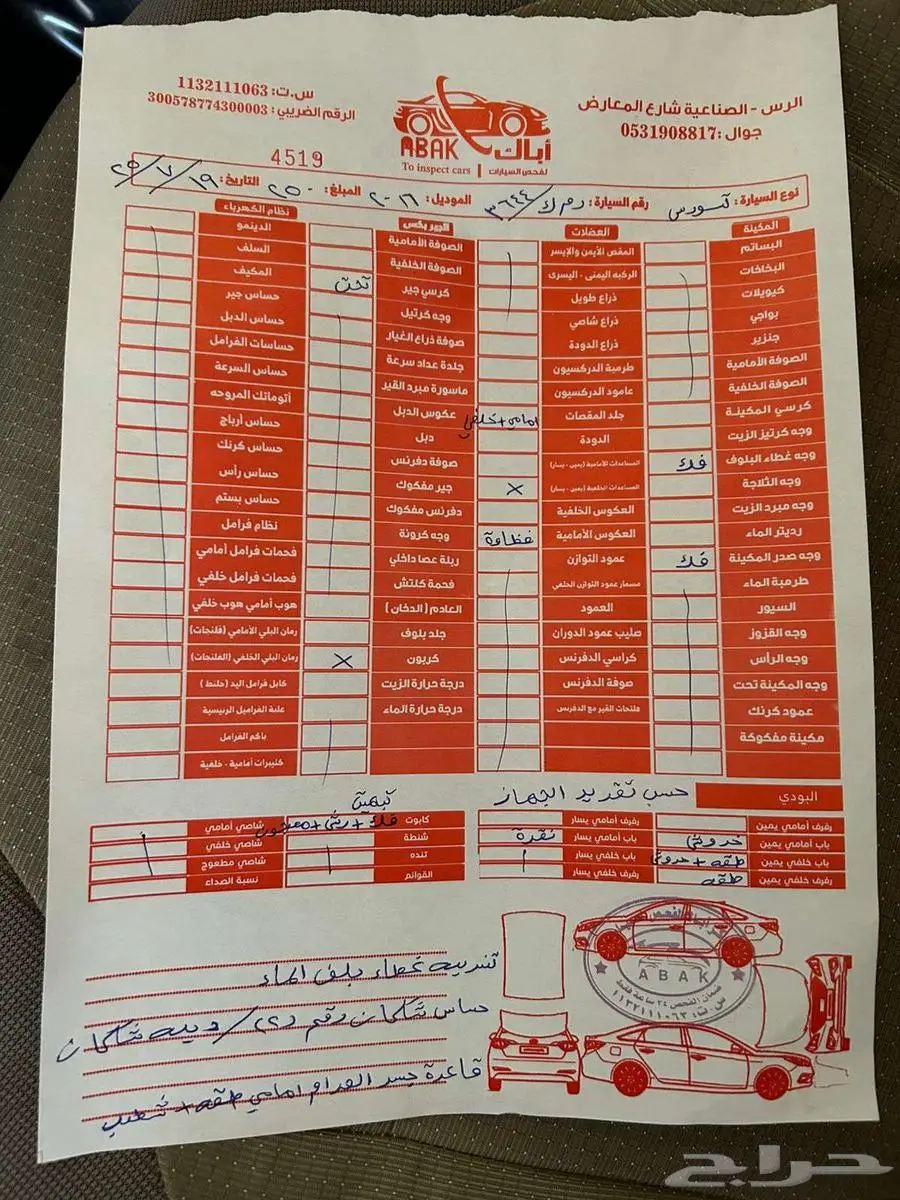 الرس - الصناعية شارع المعارض
جوال :0531908817
ABAK أباك
To inspect cars | لفحص السيارات
س.ت: 1132111063
الرقم الضريبي : 300578774300003
4519
نوع السيارة : تورس رقم السيارة : ر م ك / ٣٦٤٤ الموديل: ٢٠١٦ المبلغ: ٢٥٠ التاريخ: ١٩ / ٧ / ٢٥
المكينة
البساتم
البخاخات
كيويلات
بواجي
جنزير
الصوفة الأمامية
الصوفة الخلفية
كرسي المكينة
وجه كرتيز الزيت
وجه غطاء البلوف فك
وجه الثلاجة
وجه مبرد الزيت
رديتر الماء
وجه صدر المكينة فك
طرمبة الماء
السيور
وجه القزوز
وجه الرأس
وجه المكينة تحت
عمود كرنك
مكينة مفكوكة
العضلات
المقص الأيمن والإيسر
الركبه اليمنى - اليسرى
ذراع طويل
ذراع شاصي
ذراع الدودة
طرمبة الدركسيون
عامود الدركسيون
جلد المقصات امامي + خلفي
الدودة
المساعدات الأمامية (يمين - يسار)
المساعدات الخلفية (يمين - يسار) ×
العكوس الخلفية
العكوس الأمامية
عمود التوازن
مسمار عمود التوازن الخلفي
العمود
صليب عمود الدوران
كراسي الدفرنس
صوفة الدفرنس
فلنجات القير مع الدفرنس
الجير بكس
الصوفة الأمامية
الصوفة الخلفية
كرسي جير تحت
وجه كرتيل
صوفة ذراع الغيار
جلدة عداد سرعة
ماسورة مبرد القير
عكوس الدبل
دبل
صوفة دفرنس
جير مفكوك
دفرنس مفكوك
وجه كرونة
ربلة عصا داخلي
فحمة كلتش
العادم (الدخان)
جلد بلوف
كربون ×
درجة حرارة الزيت
درجة حرارة الماء
نظام الكهرباء
الدينمو
السلف
المكيف
حساس جير
حساس الدبل
حساسات الفرامل
حساس السرعة
أتوماتك المروحه
حساس أرباج
حساس كرنك
حساس رأس
حساس بستم
نظام فرامل
فحمات فرامل أمامي
فحمات فرامل خلفي
هوب أمامي هوب خلفي
رمان البلي الأمامي (فلنجات)
رمان البلي الخلفي (الفلنجات)
كابل فرامل اليد (جلنط)
علبة الفراميل الرئيسية
باكم الفرامل
كليبرات أمامية - خلفية
البودي حسب تقدير الجهاز
رفرف أمامي يمين
باب أمامي يمين خدوش
باب خلفي يمين طقه + خدوش
رفرف خلفي يمين طقه
رفرف أمامي يسار
باب أمامي يسار نقرة
باب خلفي يسار
رفرف خلفي يسار
كابوت
شنطة
تنده
القوائم
شاصي أمامي
شاصي خلفي
شاصي مطعوج
نسبة الصداء
ABAK
ضمان الفحص ٢٤ ساعة فقط
س.ت: ١١٣٢١١١٠٦٣
تندية غطاء بلف الماء
حساس شكمان رقم
قاعدة جسر الصدام امامي طقه + شطب
حراج